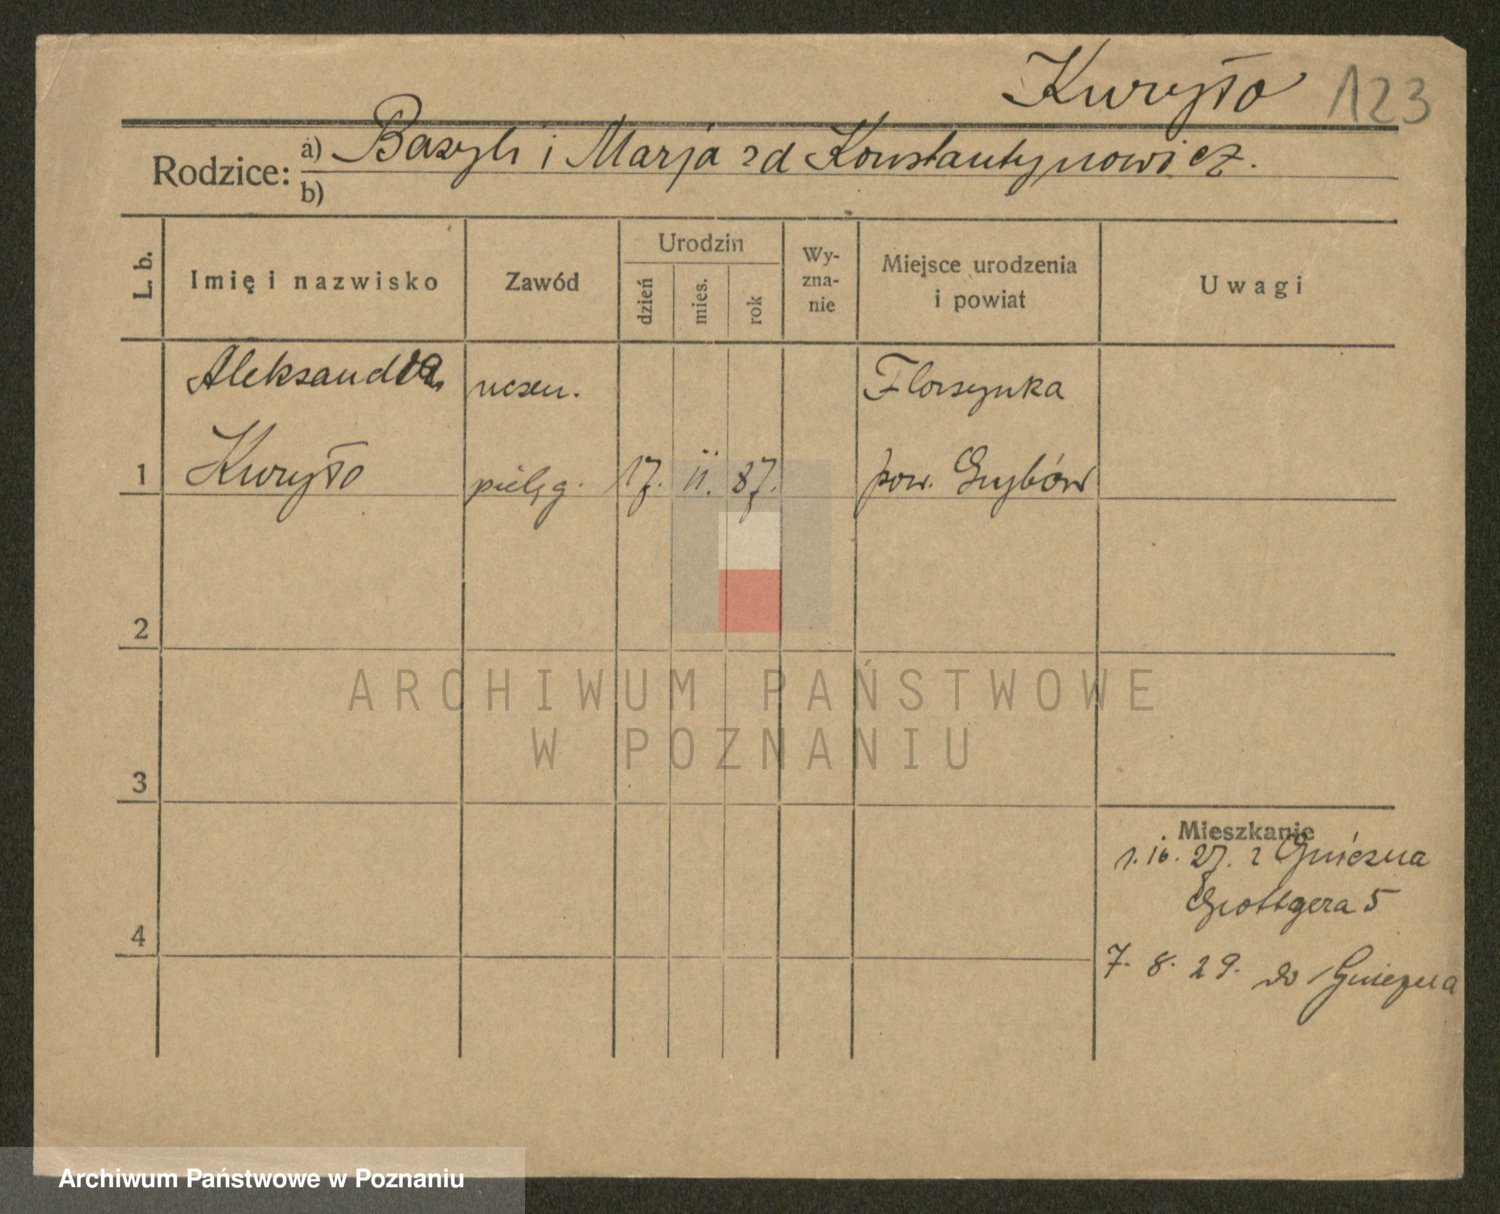 Kuryło 123
Rodzice: a) Bazyli i Marja zd Konstantynowicz.
b)
L. b.
Imię i nazwisko
Zawód
Urodzin
dzień
mies.
rok
Wy-
zna-
nie
Miejsce urodzenia
i powiat
Uwagi
Aleksandra uczen. Florynka
1 Kuryło pielęg. 17. II. 87. pow. Grybów
2
3
4
Mieszkanie
1. 10. 27. z Gniezna
Grottgera 5
7. 8. 29. do Gniezna
ARCHIWUM PAŃSTWOWE
W POZNANIU
Archiwum Państwowe w Poznaniu